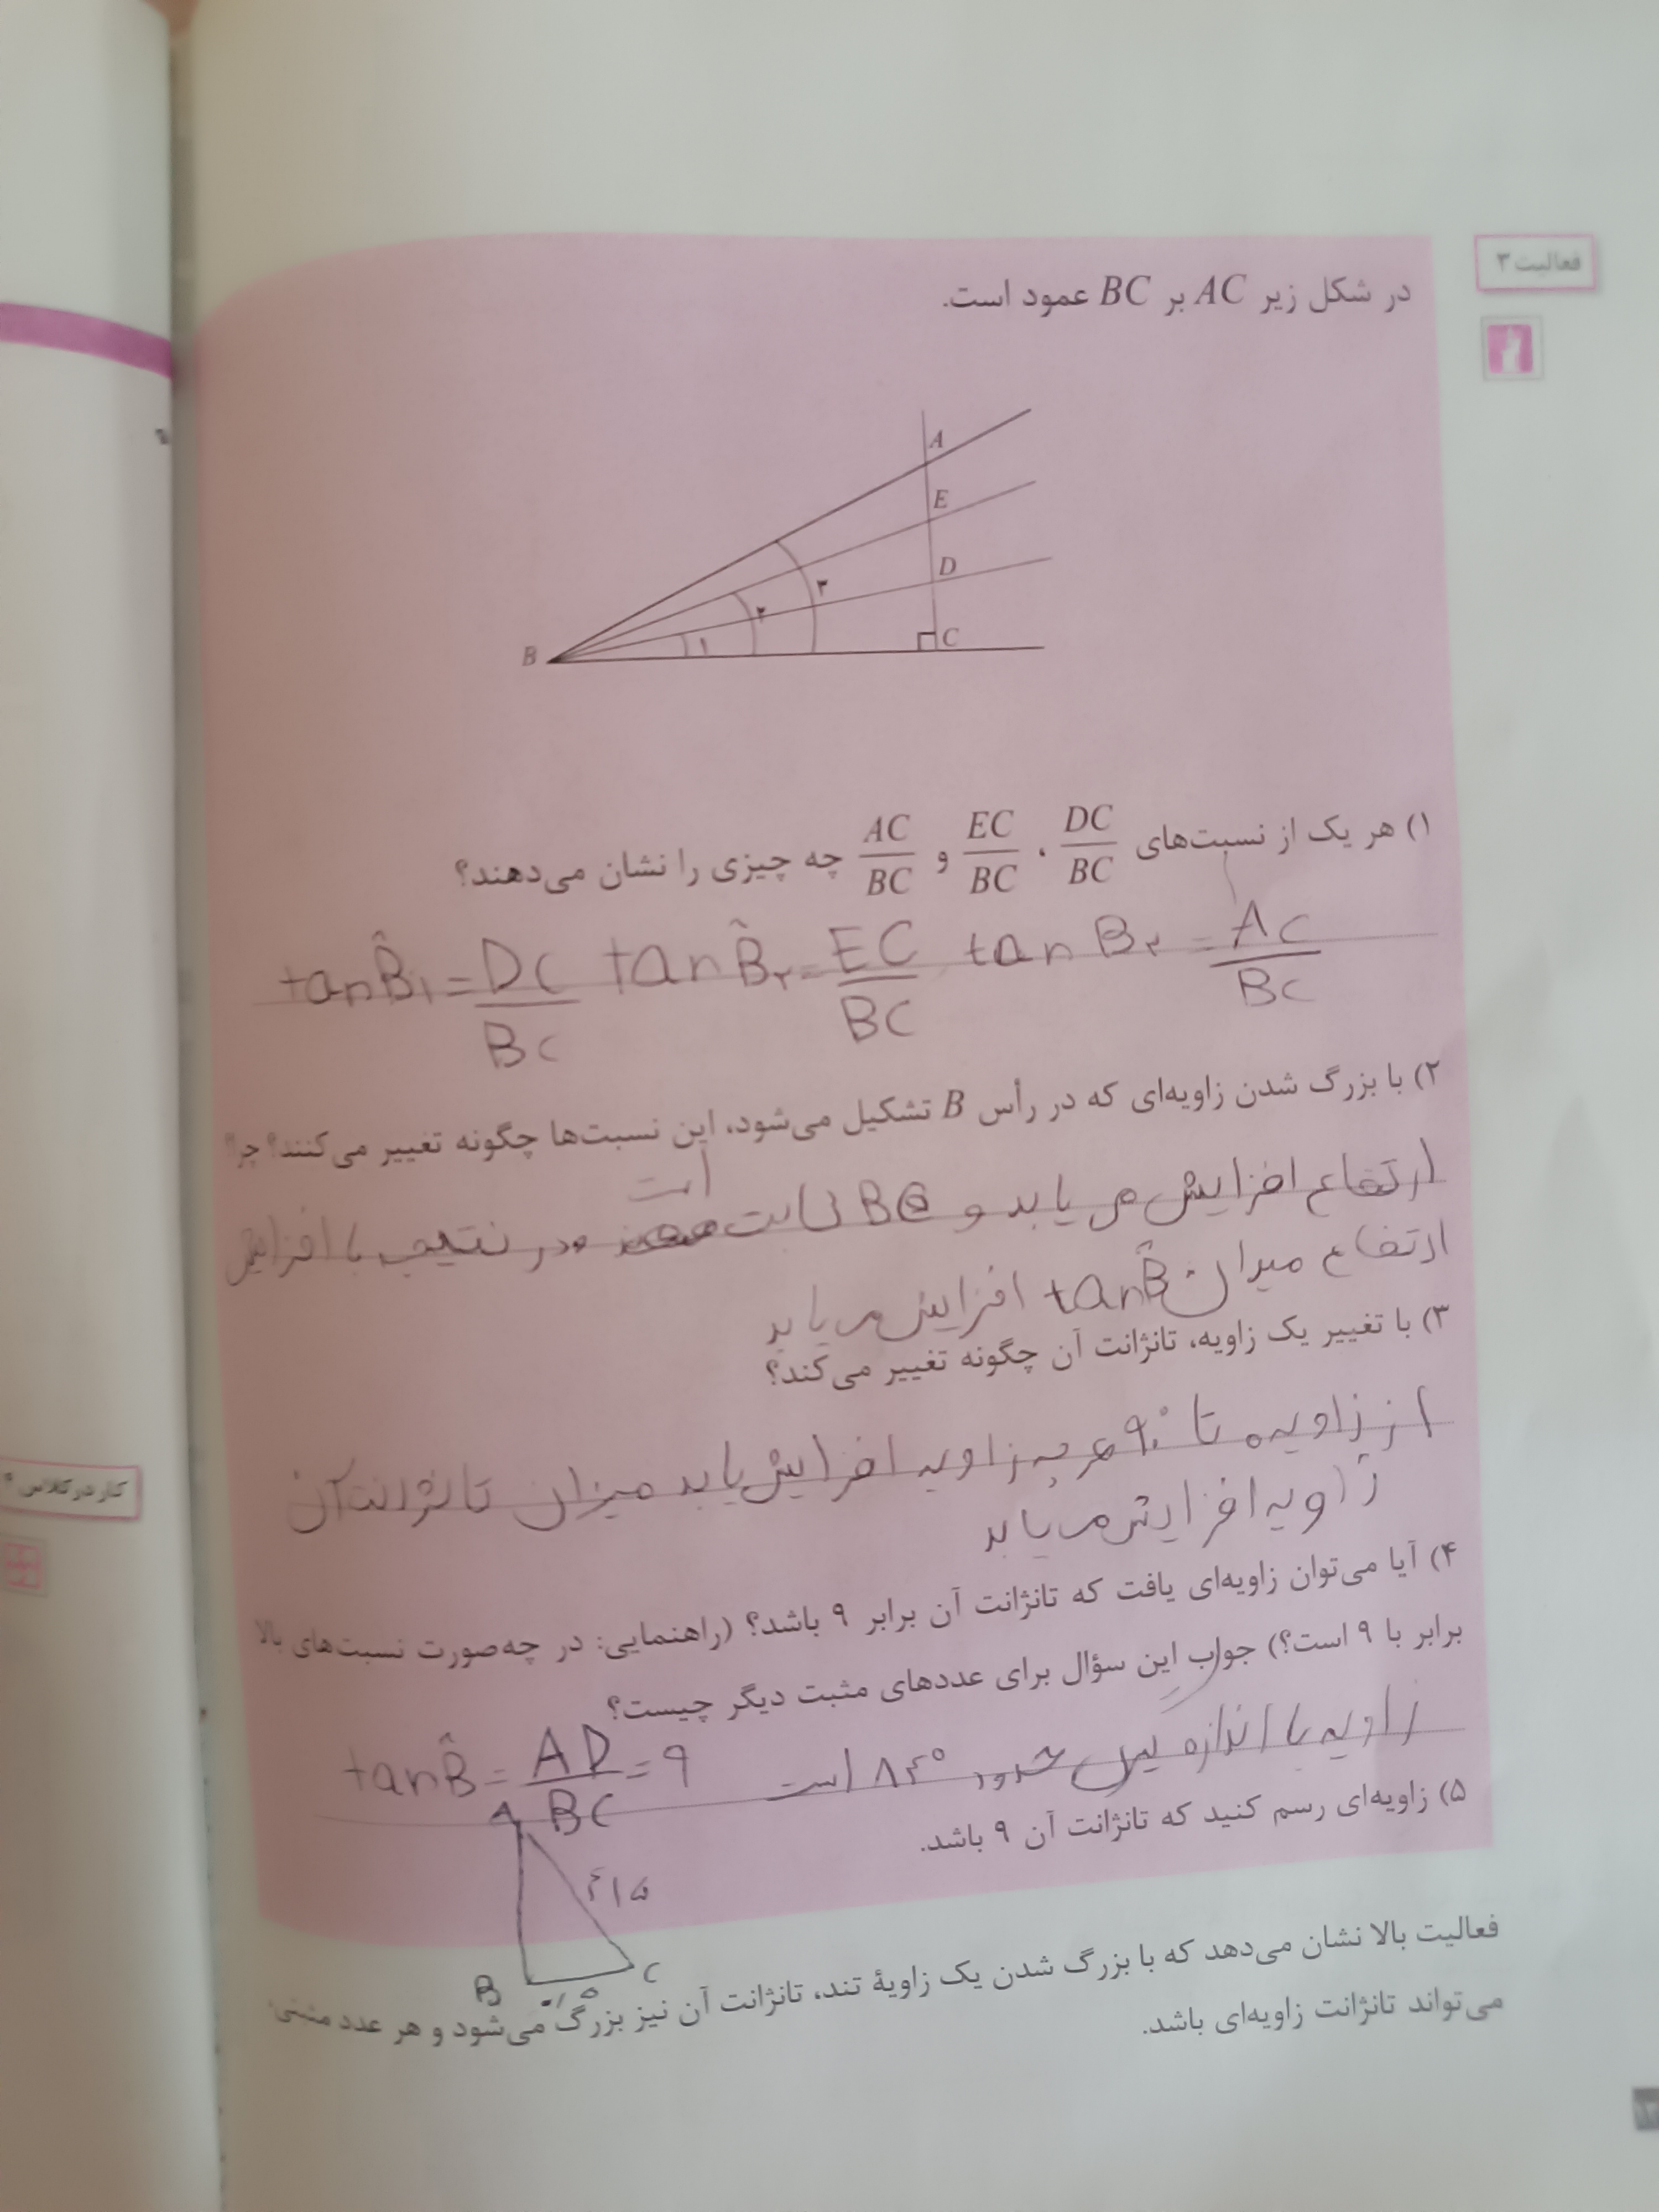 فعالیت ۳
در شکل زیر AC بر BC عمود است.
A
E
D
C
B
۱
۲
۳
۱) هر یک از نسبت‌های DC/BC ، EC/BC و AC/BC چه چیزی را نشان می‌دهند؟
tanB̂۱ = DC/BC tanB̂۲ = EC/BC tan B۳ = AC/BC
۲) با بزرگ شدن زاویه‌ای که در رأس B تشکیل می‌شود، این نسبت‌ها چگونه تغییر می‌کنند؟ چرا؟
ارتفاع افزایش می یابد و BC ثابت است در نتیجه با افزایش
ارتفاع میزان tanB̂ افزایش می یابد
۳) با تغییر یک زاویه، تانژانت آن چگونه تغییر می‌کند؟
از زاویه تا ۹۰° هر چه زاویه افزایش یابد میزان تانژانت آن
زاویه افزایش می یابد
۴) آیا می‌توان زاویه‌ای یافت که تانژانت آن برابر ۹ باشد؟ (راهنمایی: در چه‌صورت نسبت‌های بالا
برابر با ۹ است؟) جواب این سؤال برای عددهای مثبت دیگر چیست؟
زاویه با اندازه حدود ۸۴° است
tanB̂ = AD/BC = ۹
۵) زاویه‌ای رسم کنید که تانژانت آن ۹ باشد.
A
B
C
فعالیت بالا نشان می‌دهد که با بزرگ شدن یک زاویهٔ تند، تانژانت آن نیز بزرگ می‌شود و هر عدد مثبتی
می‌تواند تانژانت زاویه‌ای باشد.
کار در کلاس ۴